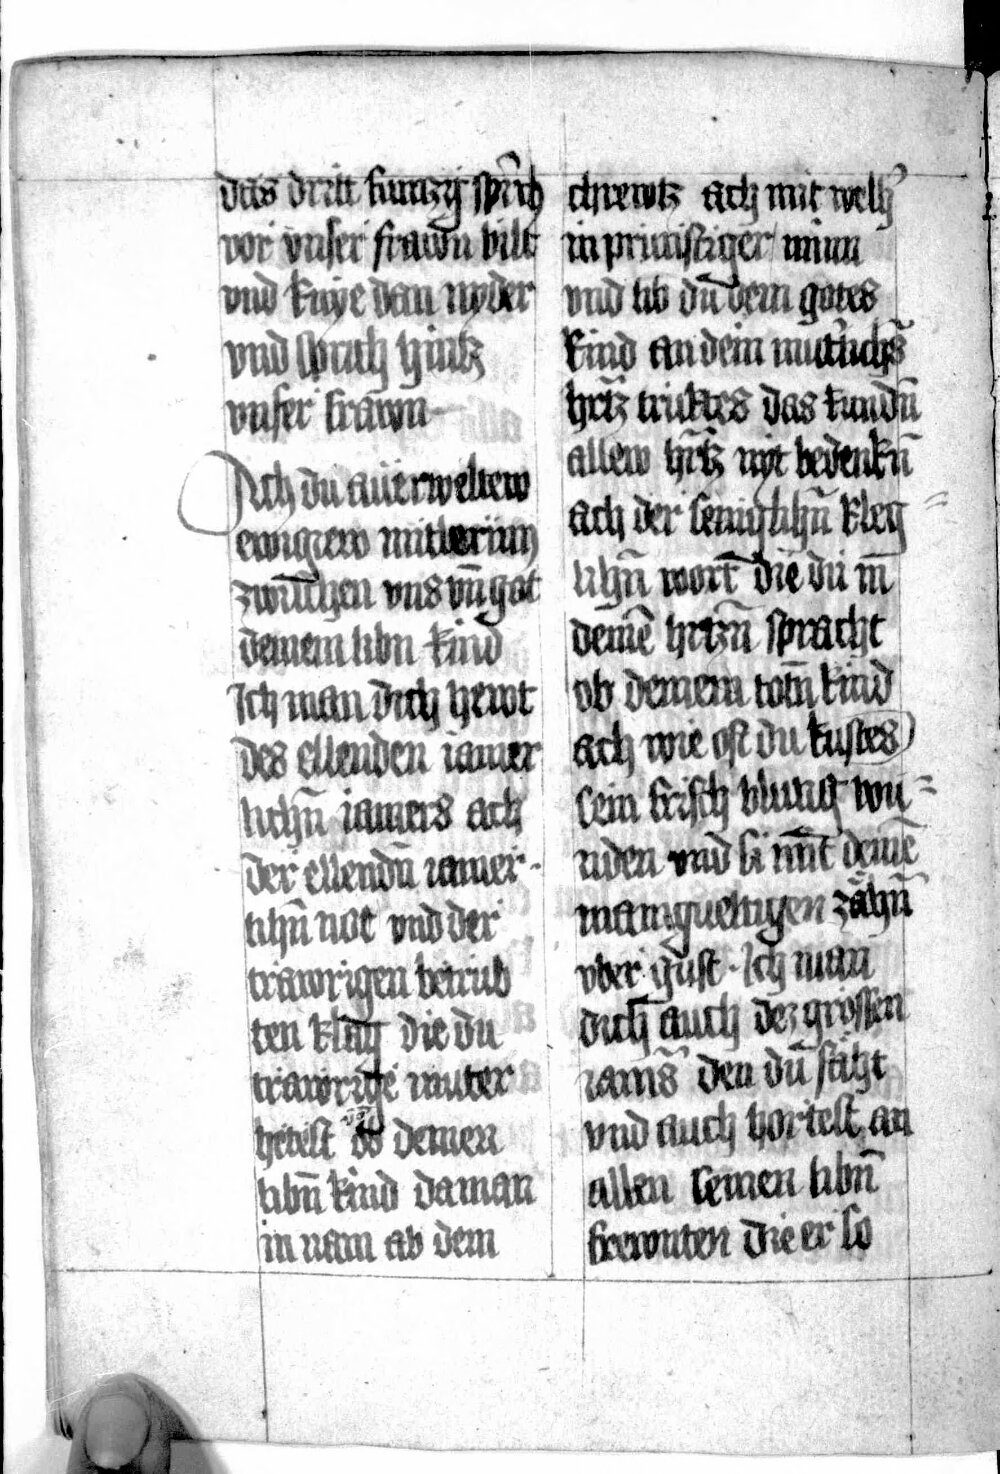 das dritt funczig sprich
vor vnser frawn bild
vnd knye dan nyder
vnd sprich hintz
vnser frawn
Ach du auerweltew
ewigew mitlerinn
zwischen vns vn̄ got
deinem libn kind
Ich man dich hewt
des ellenden iamer
lichn̄ iamers ach
der ellendn̄ iamer-
lihn̄ not vnd der
trawrigen betrub
ten klag die du
trawrige muter
hetest ob deinen
libn̄ kind da man
in nam ab dem
chrewtz ach mit welh'
in prinnstiger minn
vnd lib du dem gotes
kind an dein muterlichs̄
hrtz̄ truktes das kundn̄
allew hr̄tz nyt bedenkn̄
ach der senighhn̄ kleg
lihn̄ wort die du in̄
deinē hrtzn̄ spracht
ob deinem totn̄ kind
ach wie oft du kustes
sein frisch blutig wu=
nden vnd si mit deinē
manigueltigen zähn̄
vber gust. Ich man
dich auch dez grossen
iamers den du säht
vnd auch hortest an
allen seinen libn̄
frewnten die er so